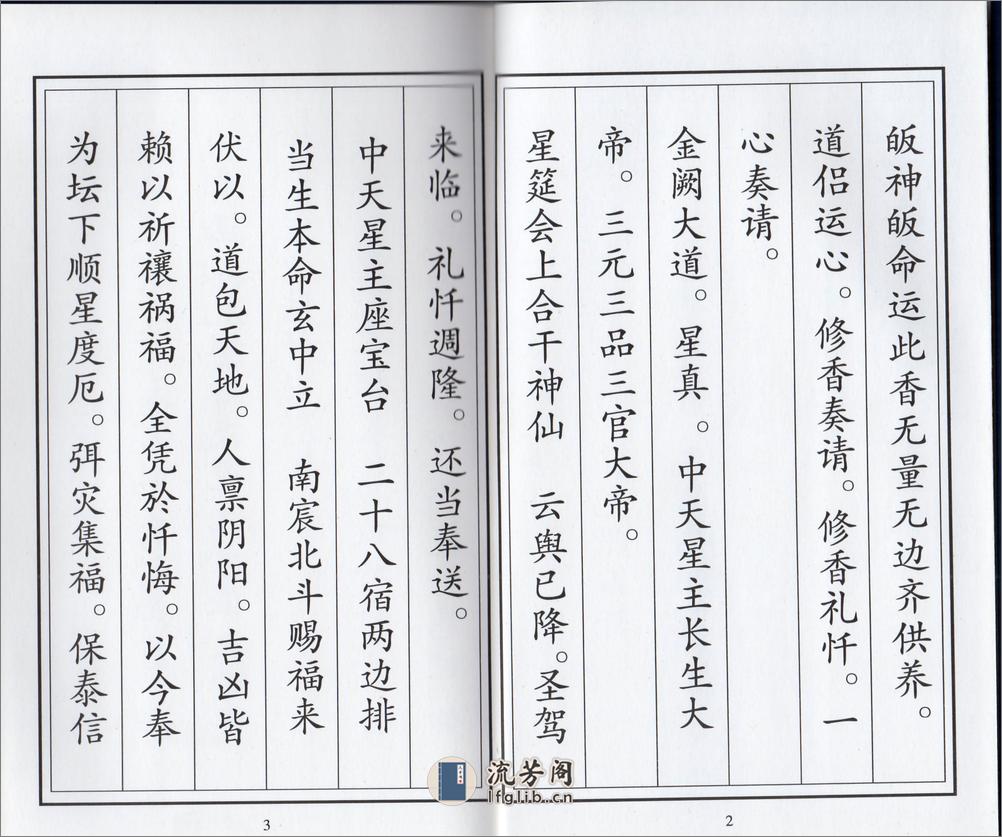 皈神皈命运此香无量无边齐供养。
道侣运心。修香奏请。修香礼忏。一
心奏请。
金阙大道。星真。中天星主长生大
帝。三元三品三官大帝。
星筵会上合干神仙 云舆已降。圣驾
2
来临。礼忏週隆。还当奉送。
中天星主座宝台 二十八宿两边排
当生本命玄中立 南宸北斗赐福来
伏以。道包天地。人禀阴阳。吉凶皆
赖以祈禳祸福。全凭於忏悔。以今奉
为坛下顺星度厄。弭灾集福。保泰信
3
流芳阁
lfglib.cn